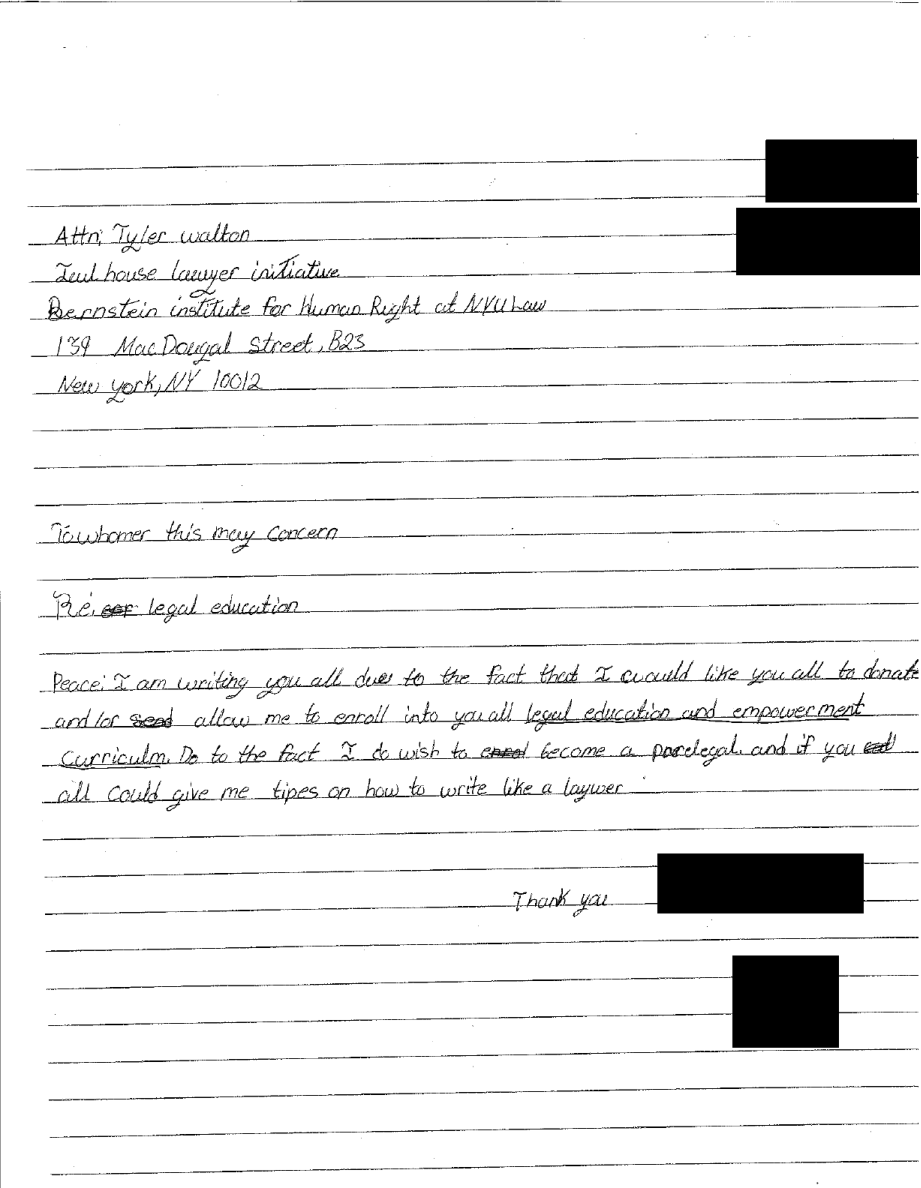 Attn; Tyler walton
Jeulhouse lawyer initiative
Bernstein institute for Human Right at NYU Law
139 MacDougal Street, B23
New york, NY 10012
Towhomer this may concern
Re: legal education
Peace; I am writing you all due to the fact that I would like you all to donate
and/or send allow me to enroll into you all legal education and empowerment
Curriculm. Do to the fact I do wish to enrol become a parelegal. and if you
all could give me tipes on how to write like a laywer
Thank you